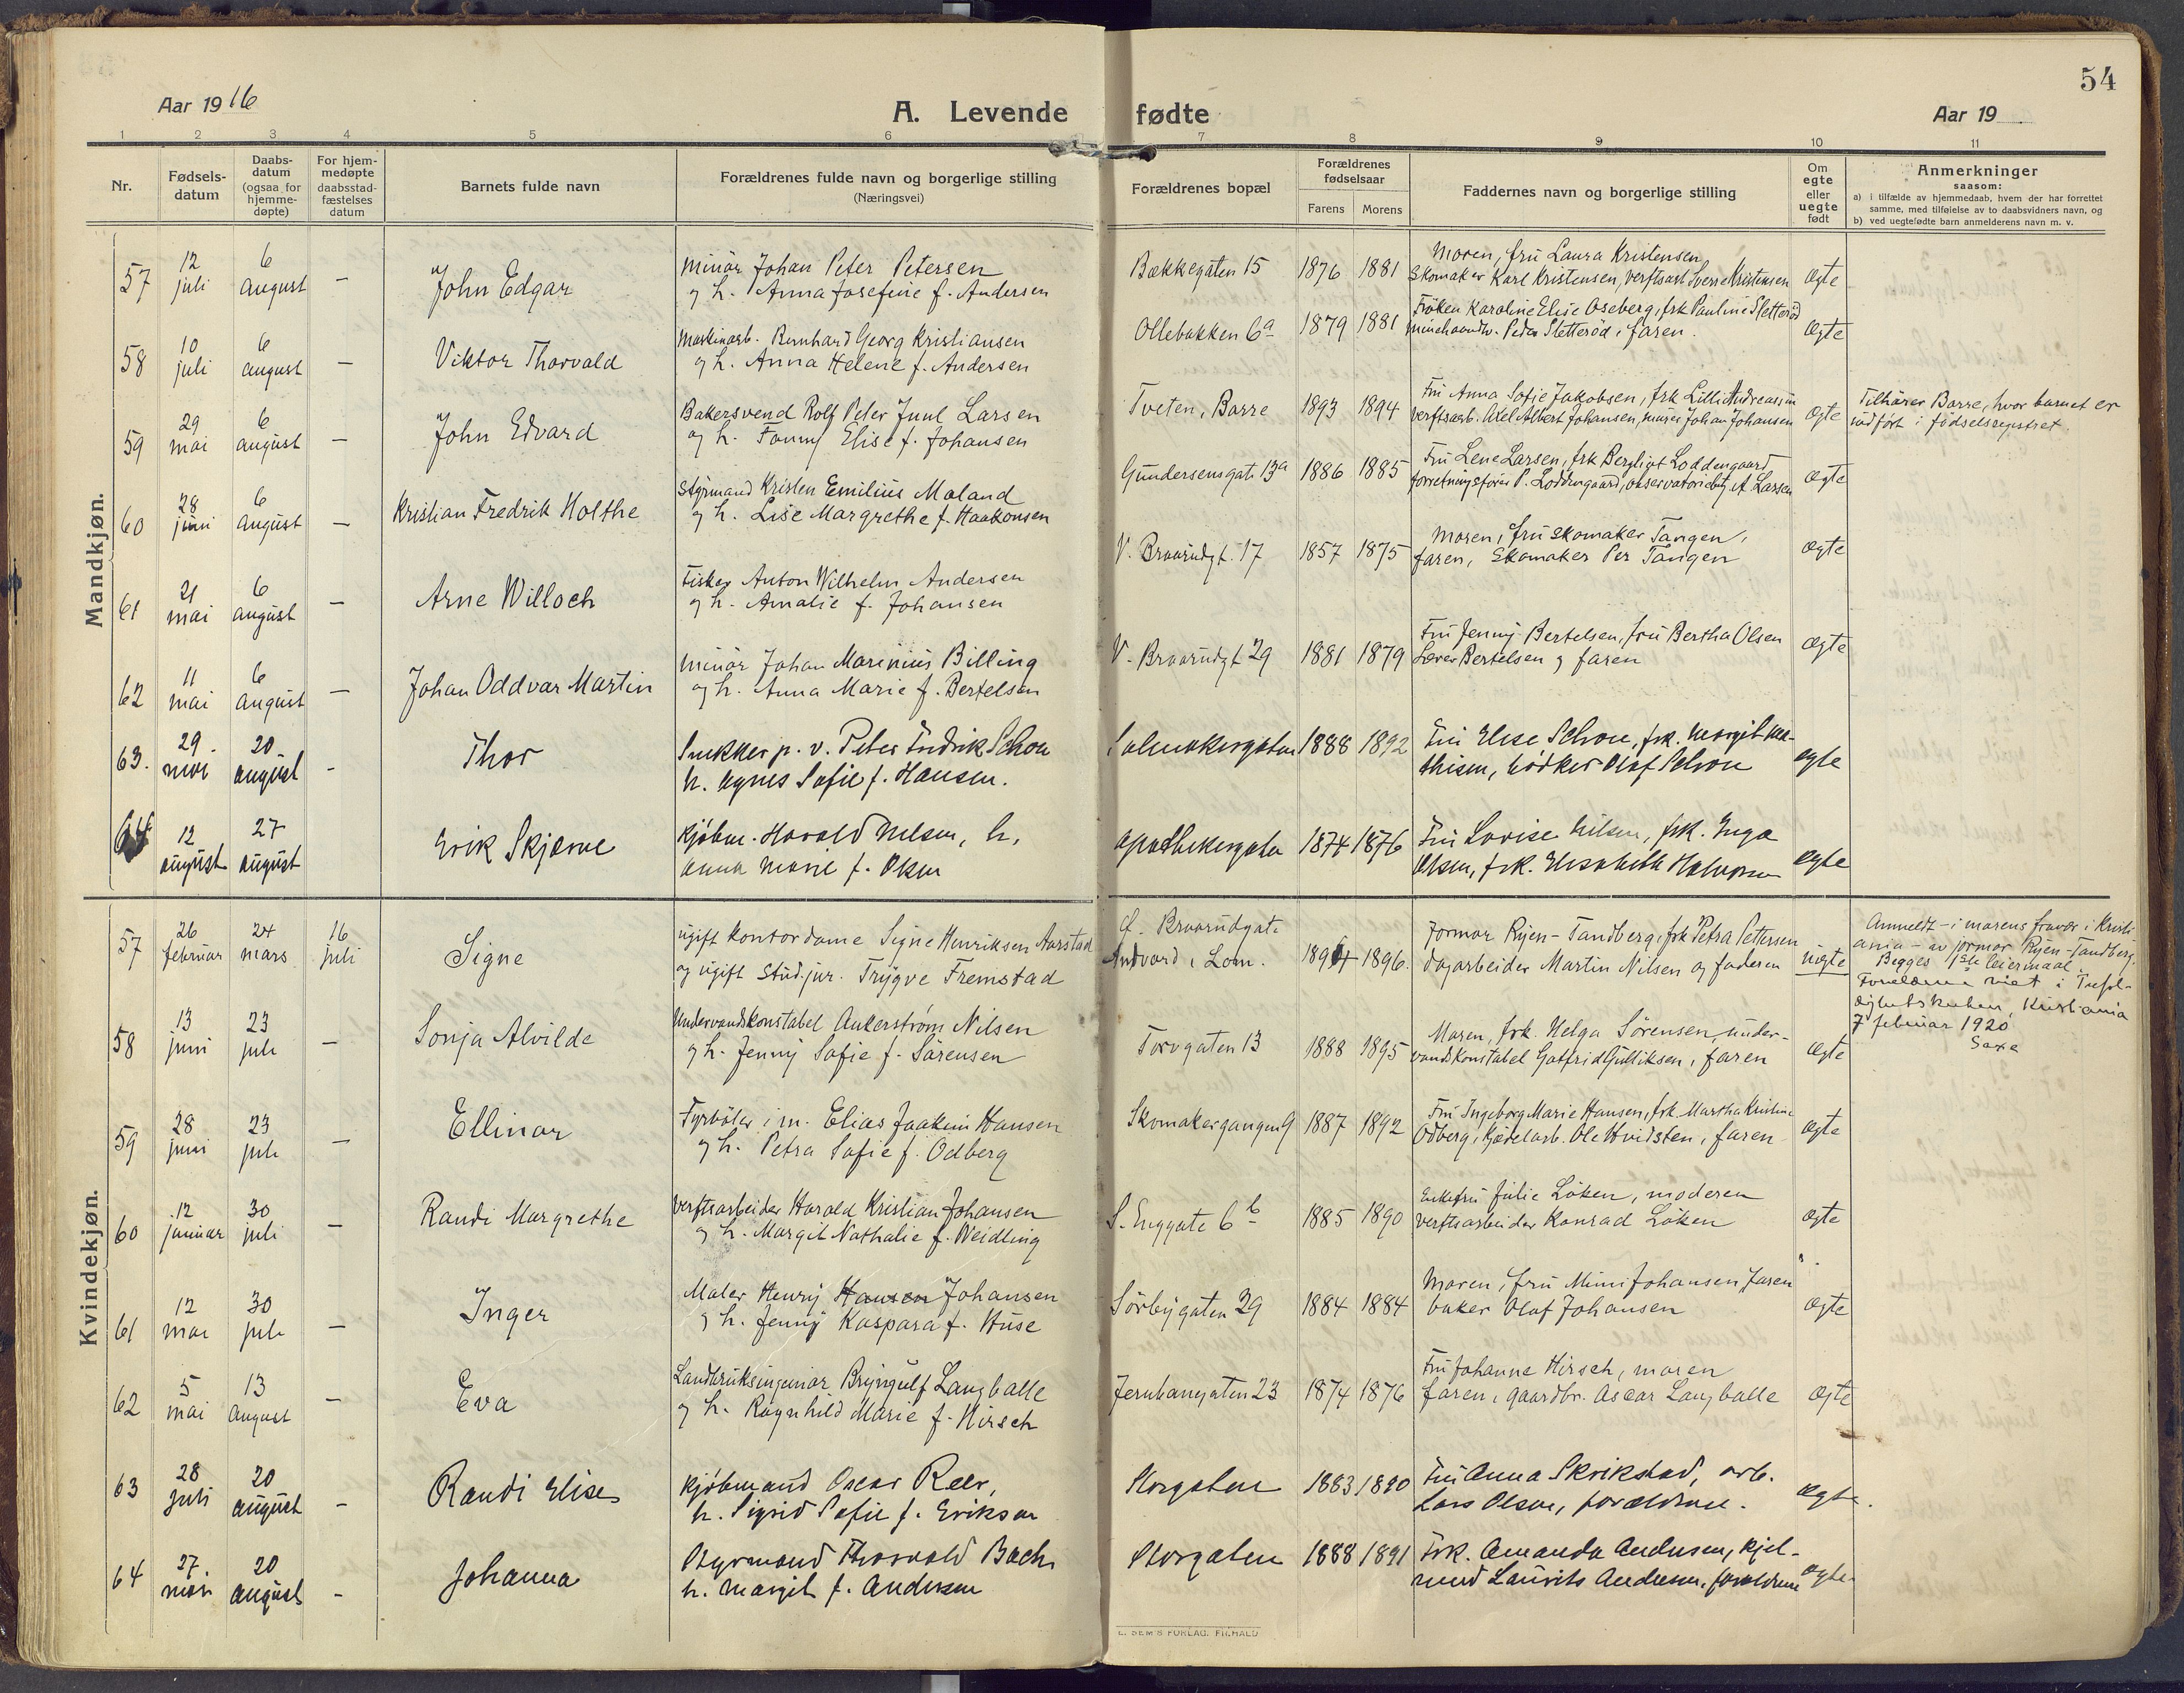 54
Aar 1916
A. Levende fødte
Aar 19
1 2 3 4 5 6 7 8 9 10 11
Nr.
Fødsels-
datum
Daabs-
datum
(ogsaa for
hjemme-
døpte)
For hjem-
medøpte
daabsstad-
fæstelses
datum
Barnets fulde navn
Forældrenes fulde navn og borgerlige stilling
(Næringsvei)
Forældrenes bopæl
Forældrenes
fødselsaar
Farens Morens
Faddernes navn og borgerlige stilling
Om
egte
eller
uegte
født
Anmerkninger
saasom:
a) i tilfælde av hjemmedaab, hvem der har forrettet
samme, med tilføielse av to daabsvidners navn, og
b) ved uegtefødte barn anmelderens navn m. v.
Mandkjøn.
57 12 juli 6 august — John Edgar
Minör Johan Peter Petersen
og h. Anna Josefine f. Andersen
Bækkegaten 15 1876 1881
Moren, fru Laura Kristensen
Skomaker Karl Kristensen, verftsarb Sverre Kristensen
Ægte
58 10 juli 6 august — Viktor Thorvald
Maskinarb. Bernhard Georg Kristiansen
og h. Anna Helene f. Andersen
Ollebakken 6a 1879 1881
Fröken Karoline Elise Oseberg, frk Pauline Sletteröd
minehaandv. Peder Sletteröd, faren.
Ægte
59 29 mai 6 august — John Edvard
Bakersvend Rolf Peter Juul Larsen
og h. Fanny Elise f. Johansen
Tveten, Borre 1893 1894
Fru Anna Sofie Jakobsen, frk Lilli Andreassen
verftsarb. Axel Albert Johansen, murer Johan Johansen
Ægte
Tilhører Borre, hvor barnet er
indført i fødselsregistret.
60 28 juni 6 august — Kristian Fredrik Holthe
Styrmand Kristen Emilius Moland
og h. Lise Margrethe f. Haakonsen
Gundersensgate 13a 1886 1885
Fru Lene Larsen, frk Bergliot Loddengaard
forretningsfører P. Loddengaard, A. Larsen
Ægte
61 21 mai 6 august — Arne Willoch
Fisker Anton Wilhelm Andersen
og h. Amalie f. Johansen
V. Braarudgt. 17 1857 1875
Moren, fru skomaker Tangen,
faren, Skomaker Per Tangen
Ægte
62 11 mai 6 august — Johan Oddvar Martin
Minör Johan Marinius Billing
og h. Anna Marie f. Bertelsen
V. Braarudgt 29 1881 1879
Fru Jenny Bertelsen, fru Bertha Olsen
Bertelsen og faren
Ægte
63. 29. mai 20 august - Thor
Snekker p. v. Peter Fredrik Schou
h. Agnes Sofie f. Hansen.
Salmakergaten 1888 1892
Fru Elise Schou, frk. Margit Ma-
thisen, bødker Olaf Schou
ægte
64 12 august 27 august Erik Skjerve
Kjøbm. Harald Nilsen, h.
Anna Marie f. Olsen
Apothekergaten 1874 1876
Fru Lovise Nilsen, frk. Inga
Olsen, frk. Elisabeth Halvorsen
ægte
Kvindekjøn.
57 26 februar 24 mars 16 juli Signe
ugift Kontordame Signe Henriksen Aarstad
og ugift Stud. jur. Trygve Fremstad
Ø. Braarudgate
Andvord i Lom. 1894 1896.
Jormor Ryen-Tandberg, frk Petra Pettersen
dagarbeider Martin Nilsen og faderen
uægte
Anmeldt - i morens fravær i Kristi-
ania - av jormor Ryen-Tandberg.
Begges 1ste leiermaal.
Forældrene viet i Trefol-
dighetskirken, Kristiania
7 februar 1920
Saxe
58 13 juni 23 juli — Sonja Alvilde
Undervandskonstabel Ankerstrøm Nilsen
og h. Jenny Sofie f. Sörensen
Torvgaten 13 1888 1895
Moren, frk. Helga Sörensen, under-
vandskonstabel Gotfrid Gulliksen, faren
Ægte
59 28 juni 23 juli — Ellinor
Fyrböter i m. Elias Joakim Hansen
og h. Petra Sofie f. Odberg
Skomakergangen 9 1887 1892
Fru Ingeborg Marie Hansen, frk Martha Kristine
Odberg, Kjedelarb. Ole Hvidsten, faren
Ægte
60 12 januar 30 juli — Randi Margrethe
Verftsarbeider Harald Kristian Johansen
og h. Margit Nathalie f. Weidling
S. Enggate 6b 1885 1890
Enkefru Julie Löken, moderen
verftsarbeider Konrad Löken
Ægte
61 12 mai 30 juli — Inger
Maler Henry Hansen Johansen
og h. Jenny Kaspara f. Huse
Sörbygaten 29 1884 1884
Moren, fru Mimi Johansen, faren
baker Olaf Johansen
Ægte
62 5 mai 13 august — Eva
Landbruksingeniør Bryngulf Langballe
og h. Ragnhild Marie f. Hirsch
Jernbanegaten 23 1874 1876
Fru Johanne Hirsch, moren
faren, gaardbr. Oscar Langballe
Ægte
63 28 juli 20 august - Randi Elise
Kjöbmand Oscar Reer,
h. Sigrid Sofie f. Eriksen
Storgaten 1883 1890
Fru Anna Skrikstad, arb.
Lars Olsen, forældrene.
ægte.
64 27. mai 20 august - Johanna
Styrmand Thorvald Bach,
h. Margit f. Andersen
Storgaten 1888 1891
Frk. Amanda Andersen, kjøb-
mand Laurits Andersen, forældrene
ægte
E. SEM'S FORLAG, FR.HALD